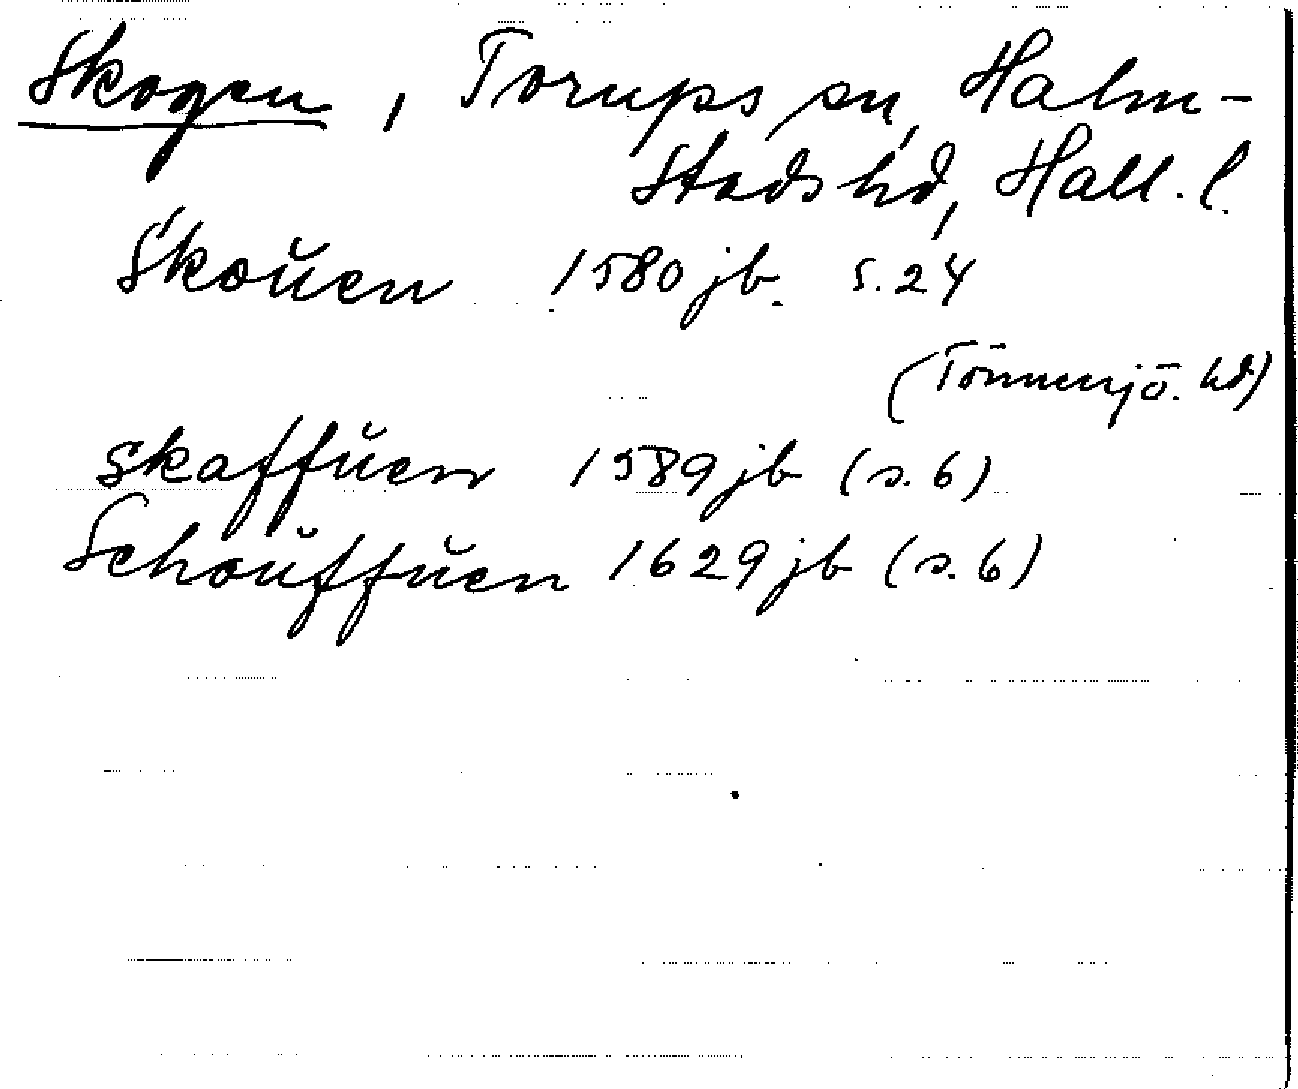 Skogen, Torups sn, Halm-
stads hd, Hall. l.
Skoŭen 1580 jb. s. 24
(Tönnersjö. hd)
skaffŭen 1589 jb (s. 6)
Schoŭffŭen 1629 jb (s. 6)